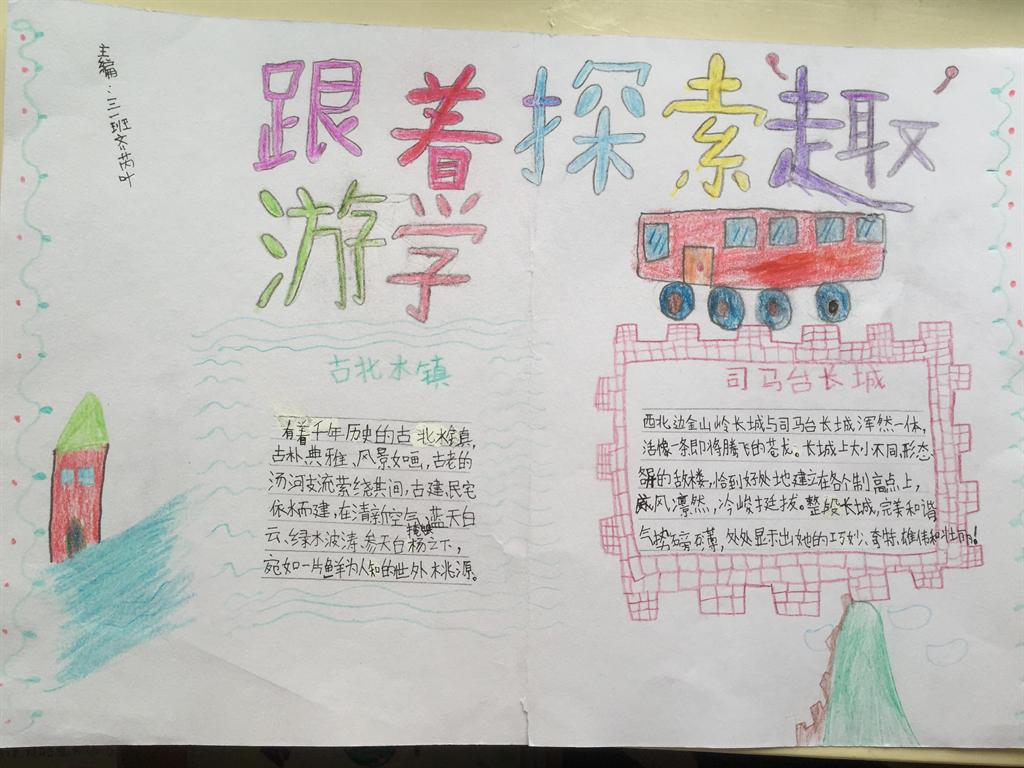 主编：三一班齐芮叶
跟着探索趣
游学
古北水镇
有着千年历史的古北水镇,
古朴典雅、风景如画,古老的
汤河支流萦绕其间,古建、民宅
依水而建,在清新空气、蓝天白
云、绿水波涛、参天白杨掩映之下,
宛如一片鲜为人知的世外桃源。
司马台长城
西北边金山岭长城与司马台长城浑然一体,
活像一条即将腾飞的苍龙。长城上大小不同,形态
各异的敌楼,恰到好处地建立在各个制高点上,
威风凛然,冷峻挺拔。整段长城,完美和谐
气势磅礴,处处显示出她的巧妙、奇特、雄伟和壮丽!